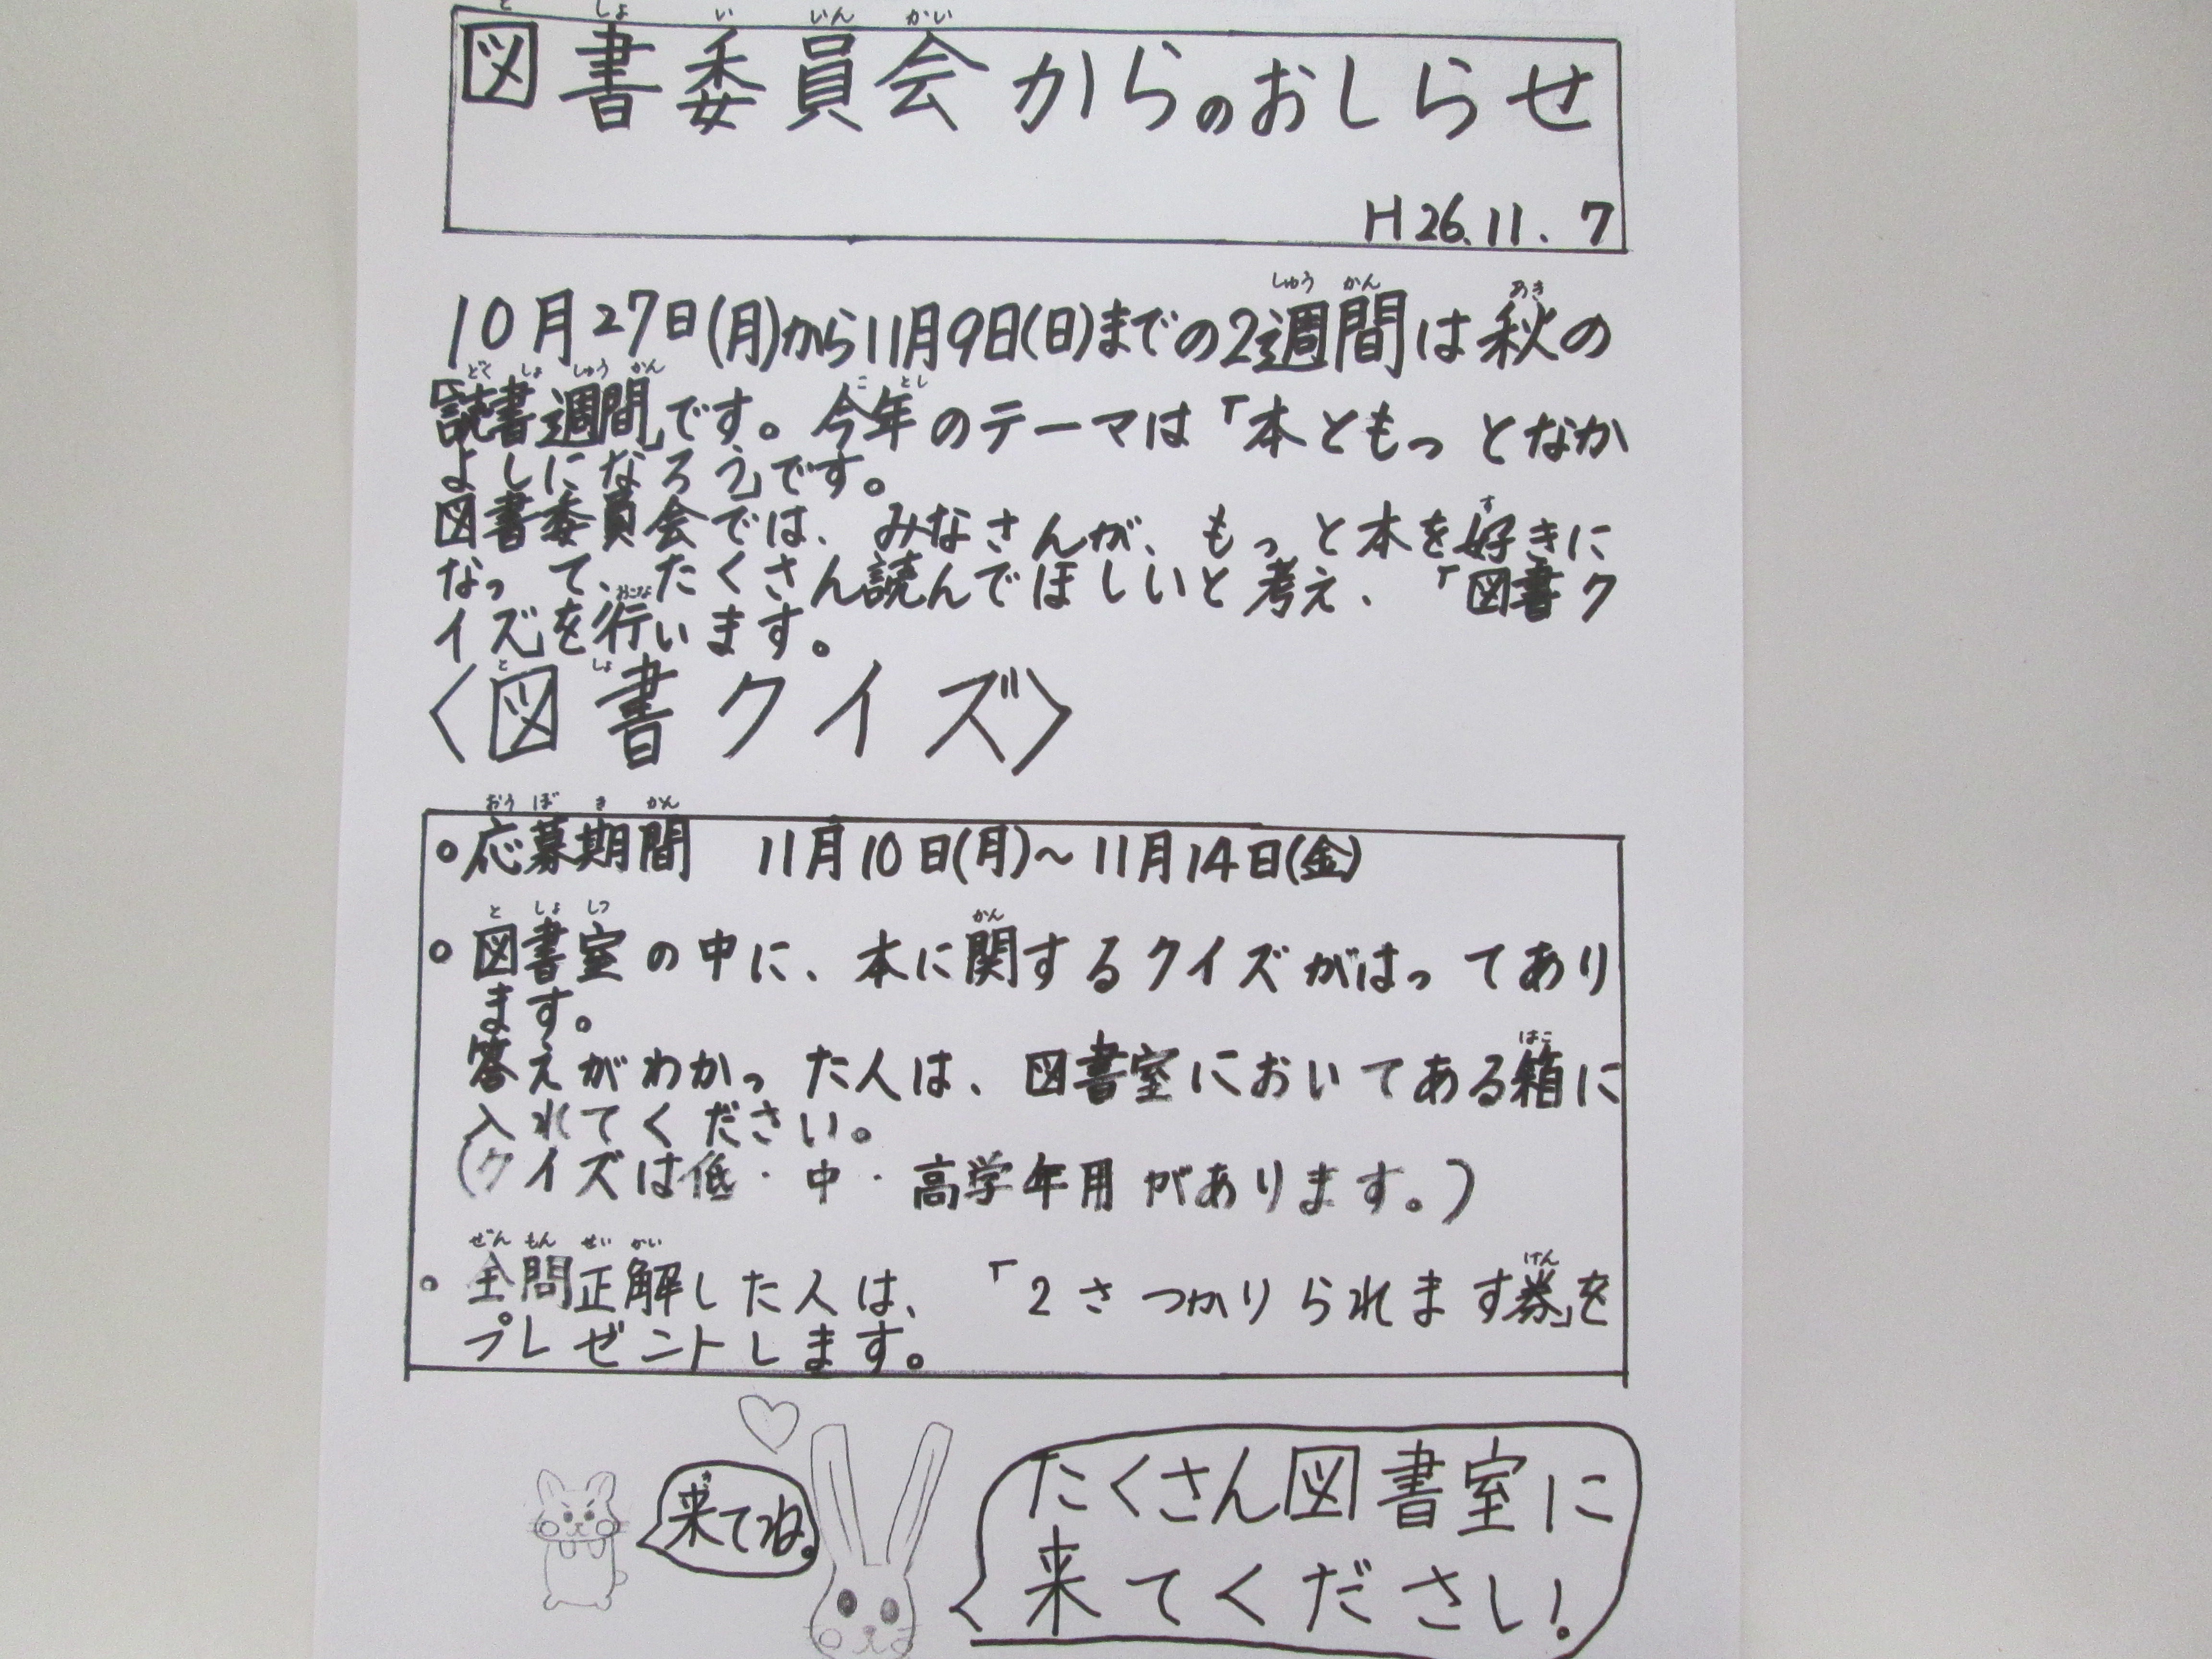 図書委員会からのおしらせ
H26.11.7
10月27日(月)から11月9日(日)までの2週間は秋の
「読書週間」です。今年のテーマは「本ともっとなか
よしになろう」です。
図書委員会では、みなさんが、もっと本を好きに
なって、たくさん読んでほしいと考え、「図書ク
イズ」を行います。
〈図書クイズ〉
○応募期間 11月10日(月)～11月14日(金)
○図書室の中に、本に関するクイズがはってあり
ます。
答えがわかった人は、図書室においてある箱に
入れてください。
(クイズは低・中・高学年用があります。)
○全問正解した人は、「2さつかりられます券」を
プレゼントします。
来てね。
たくさん図書室に
来てください!